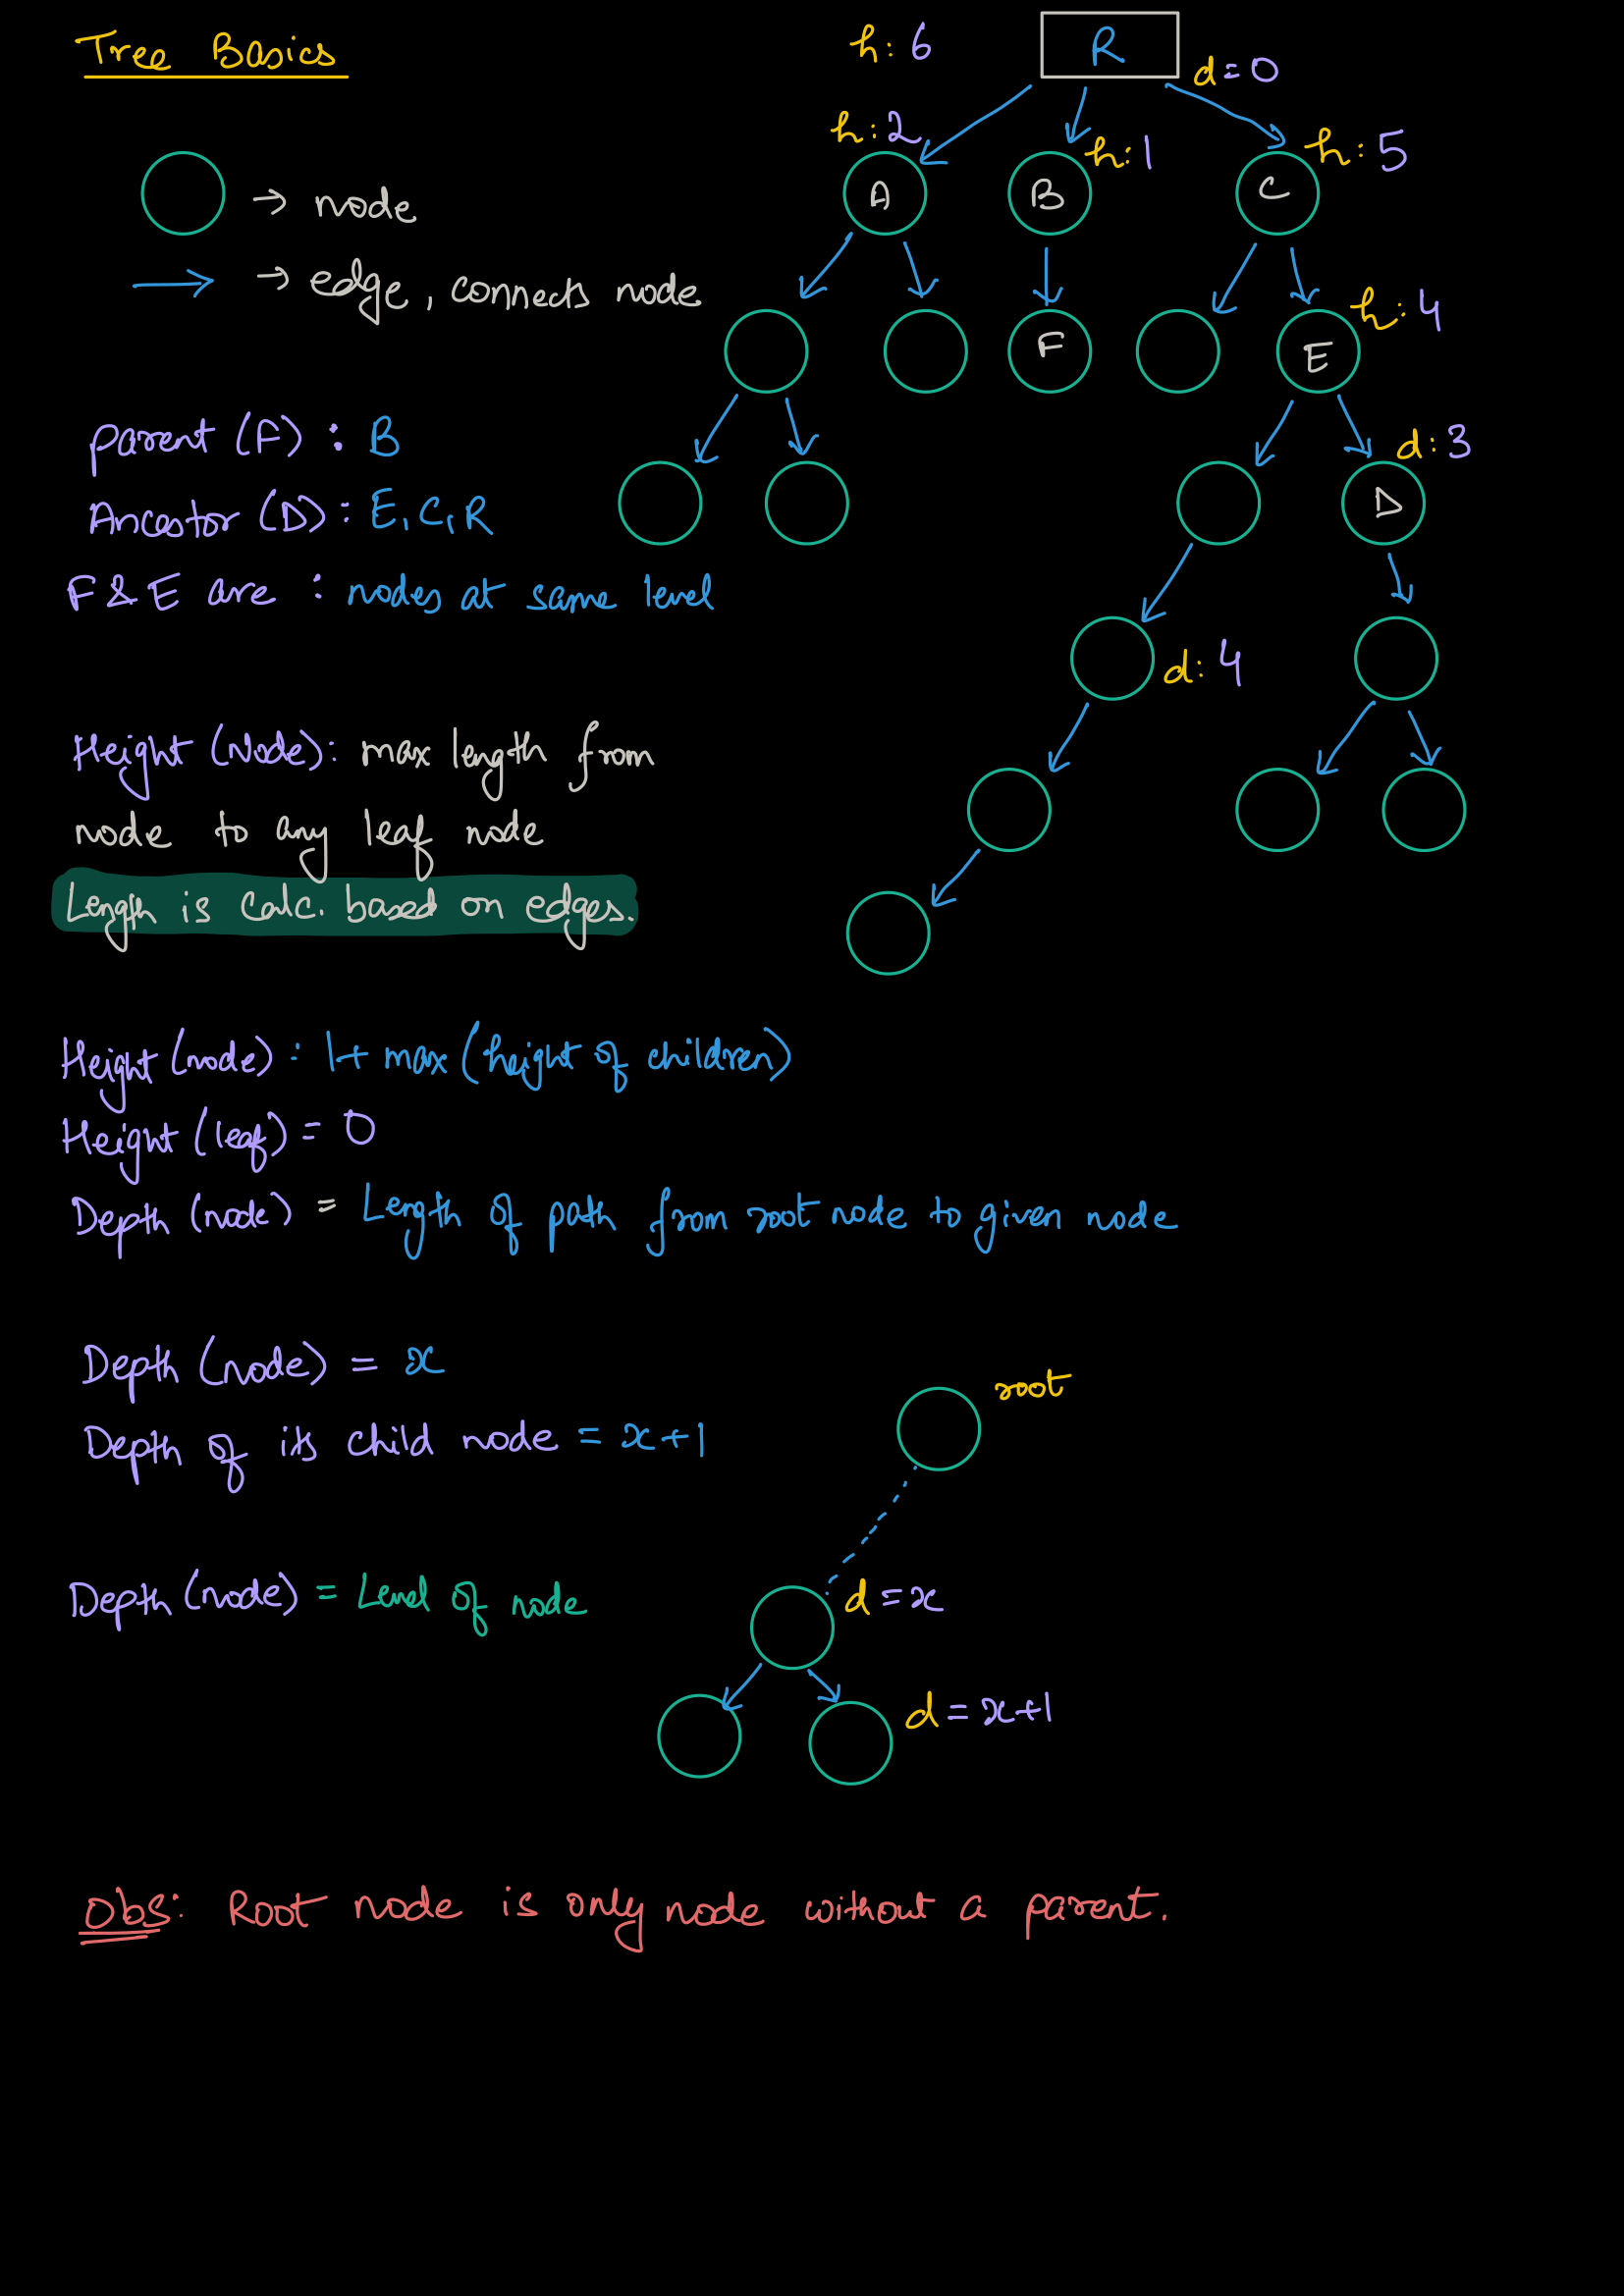 Tree Basics
h: 6
R
d=0
h: 2
h: 1
h: 5
A
B
C
→ node
→ edge, connects node
h: 4
F
E
parent (F) : B
d: 3
Ancestor (D) : E, C, R
D
F & E are : nodes at same level
d: 4
Height (Node): max length from
node to any leaf node
Length is calc. based on edges.
Height (node) : 1+ max (height of children)
Height (leaf) = 0
Depth (node) = Length of path from root node to given node
Depth (node) = x
root
Depth of its child node = x+1
Depth (node) = Level of node
d = x
d = x+1
Obs: Root node is only node without a parent.